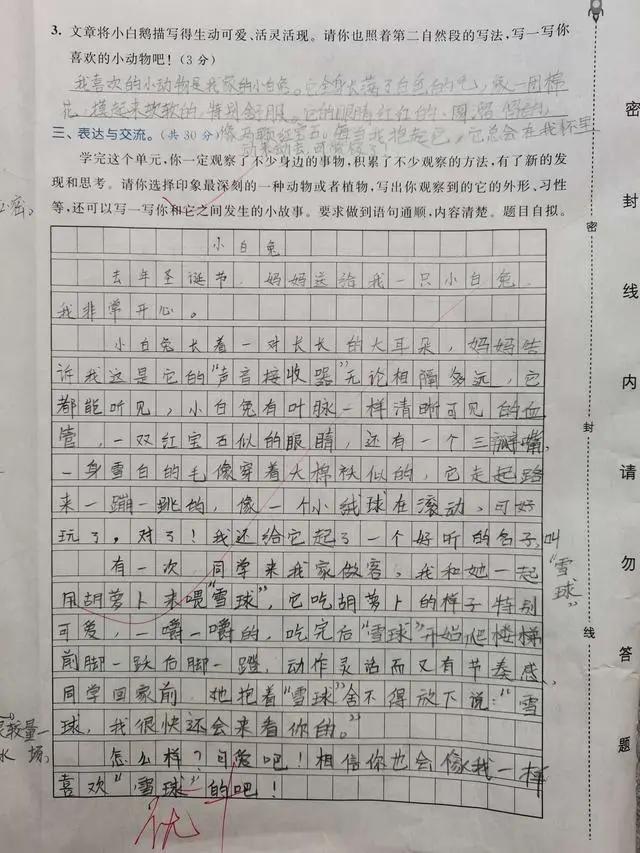 3. 文章将小白鹅描写得生动可爱、活灵活现。请你也照着第二自然段的写法,写一写你
喜欢的小动物吧!(3分)
我喜欢的小动物是我家的小白兔。它全身长满了白色的毛,像一团棉
花,摸起来软软的,特别舒服。它的眼睛红红的、圆溜溜的,
像两颗红宝石。每当我抱起它,它总会在我怀里
动来动去,可爱极了。
三、表达与交流。(共30分)
学完这个单元,你一定观察了不少身边的事物,积累了不少观察的方法,有了新的发
现和思考。请你选择印象最深刻的一种动物或者植物,写出你观察到的它的外形、习性
等,还可以写一写你和它之间发生的小故事。要求做到语句通顺,内容清楚。题目自拟。
小白兔
去年圣诞节,妈妈送给我一只小白兔,
我非常开心。
小白兔长着一对长长的大耳朵,妈妈告
诉我这是它的“声音接收器”无论相隔多远,它
都能听见,小白兔有叶脉一样清晰可见的血
管,一双红宝石似的眼睛,还有一个三瓣嘴,
一身雪白的毛像穿着大棉袄似的,它走起路
来一蹦一跳的,像一个小绒球在滚动,可好
玩了,对了!我还给它起了一个好听的名字,叫
“雪球”
有一次,同学来我家做客,我和她一起
用胡萝卜来喂“雪球”,它吃胡萝卜的样子特别
可爱,一嚼一嚼的,吃完后“雪球”开始爬楼梯
前脚一跃后脚一蹬,动作灵活而又有节奏感,
同学回家前,她抱着“雪球”舍不得放下说:“雪
球,我很快还会来看你的。”
怎么样?可爱吧!相信你也会像我一样
喜欢“雪球”的吧!
优
密
封
线
内
请
勿
答
题
密
封
线
较量一
场,
密。